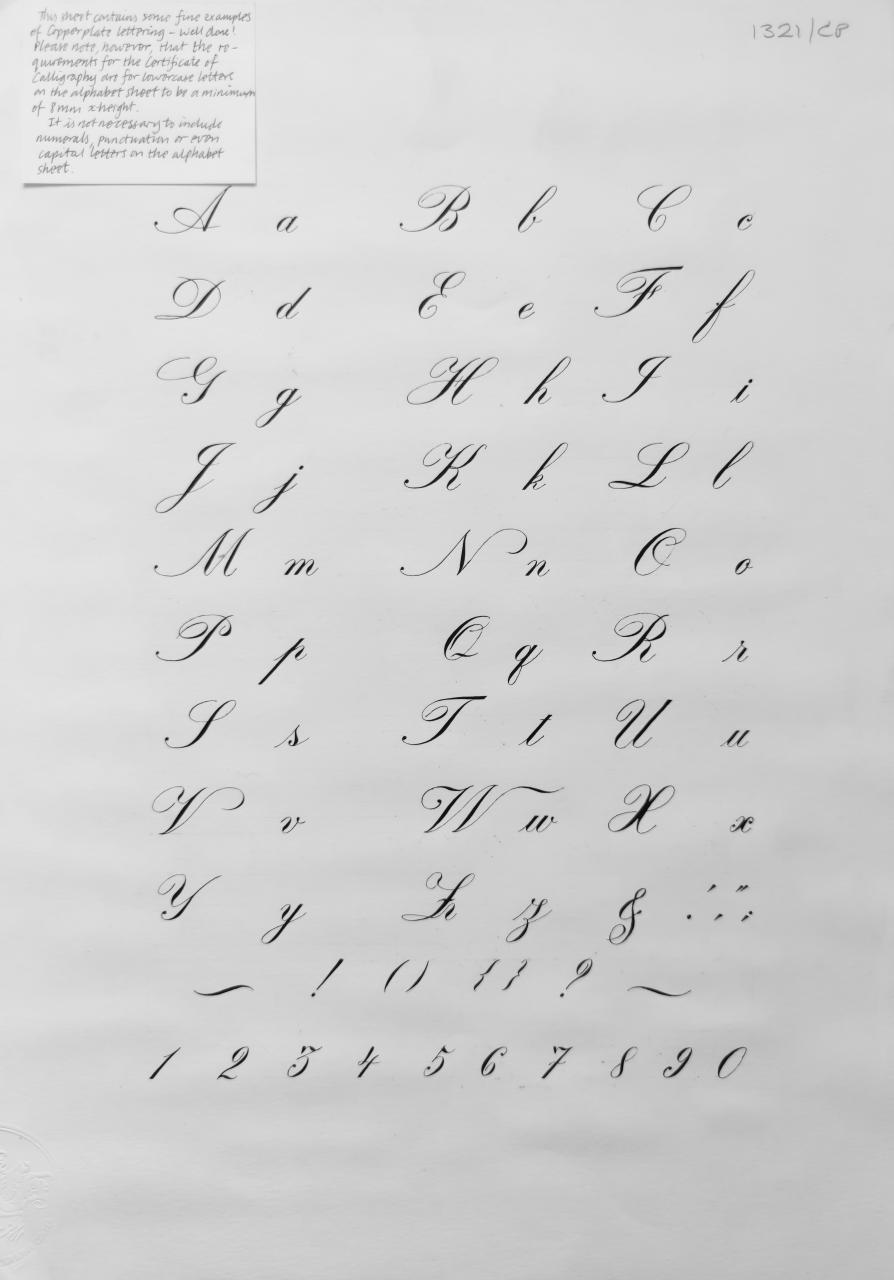 This sheet contains some fine examples
of Copperplate lettering - well done!
Please note, however, that the re-
quirements for the Certificate of
Calligraphy are for lowercase letters
on the alphabet sheet to be a minimum
of 8mm x-height.
It is not necessary to include
numerals, punctuation or even
capital letters on the alphabet
sheet.
1321/CP
A a B b C c
D d E e F f
G g H h I i
J j K k L l
M m N n O o
P p Q q R r
S s T t U u
V v W w X x
Y y Z z & . ' , " ;
~ ! ( ) { } ? ~
1 2 3 4 5 6 7 8 9 0